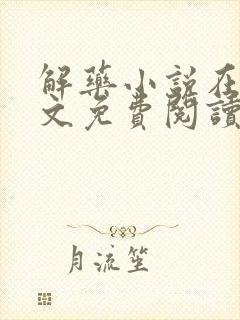 解藥小說在
文免費閱讀
月流笙